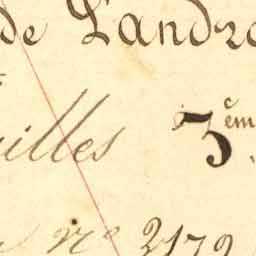 de Landre
illes 3ème
nº 2172